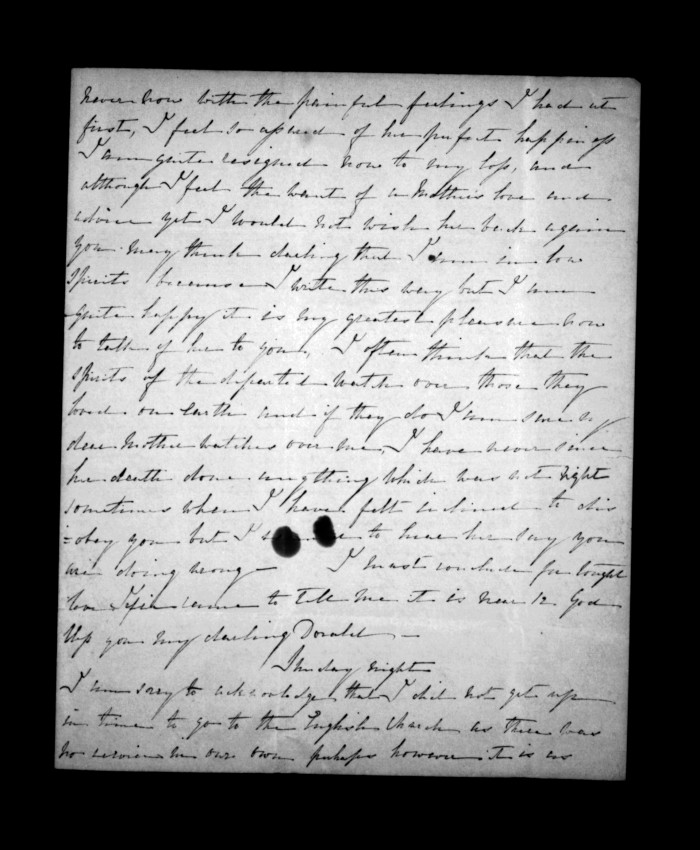 never now with the painful feelings I had at
first, I feel so assured of her perfect happiness
I am quite resigned now to my loss, and
although I feel the want of a Mothers love and
advice yet I would not wish her back again
you may think darling that I am in low
spirits because I write this way but I am
quite happy it is my greatest pleasure now
to talk of her to you, I often think that the
spirits of the departed watch over those they
loved on earth and if they do I am sure my
dear Mother watches over me, I have never since
her death done anything which was not right
sometimes when I have felt inclined to dis
=obey you but I to hear her say you
are doing wrong – I must conclude for tonight
love came to tell me it is near 12 God
bless you my darling Donald –
Sunday night
I am sorry to acknowledge that I did not get up
in time to go to the English Church as there was
no service in our own perhaps however it is as